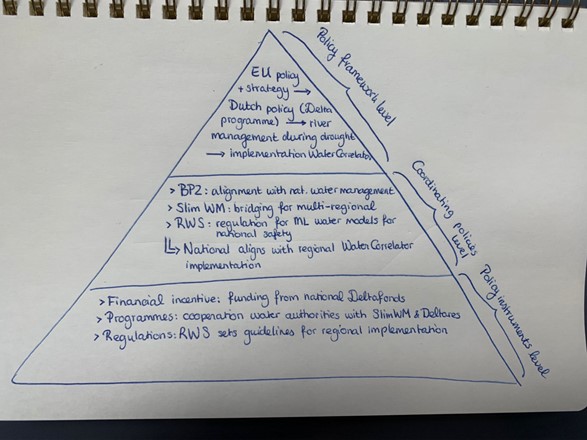 EU policy
+ strategy →
Dutch policy (Delta
programme) → river
management during drought
→ implementation WaterCorrelator
Policy framework level
> BP2: alignment with nat. water management
> Slim WM: bridging for multi-regional
> RWS: regulation for ML water models for
national safety
↳ National aligns with regional WaterCorrelator
implementation
Coordinating policies
level
> Financial incentive: funding from national Deltafonds
> Programmes: cooperation water authorities with SlimWM & Deltares
> Regulations: RWS sets guidelines for regional implementation
Policy instruments level